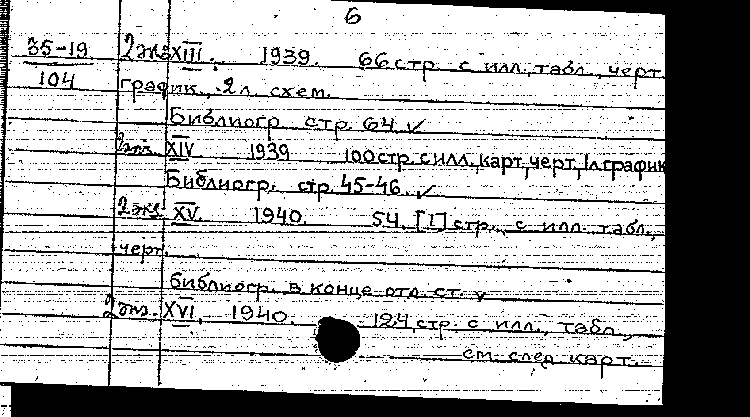 6
35-19 2 экз XIII. 1939. 66 стр. с илл., табл., черт.
104 график., 2 л. схем.
Библиогр. стр. 64 ✓
2 экз. XIV 1939 100 стр. с илл., карт, черт, 1 л. график
Библиогр. стр 45-46. ✓
2 экз XV. 1940. 54, [1] стр., с илл. табл.,
черт.
Библиогр. в конце отд. ст. ✓
2 экз. XVI, 1940. 124 стр. с илл., табл.,
см. след. карт.